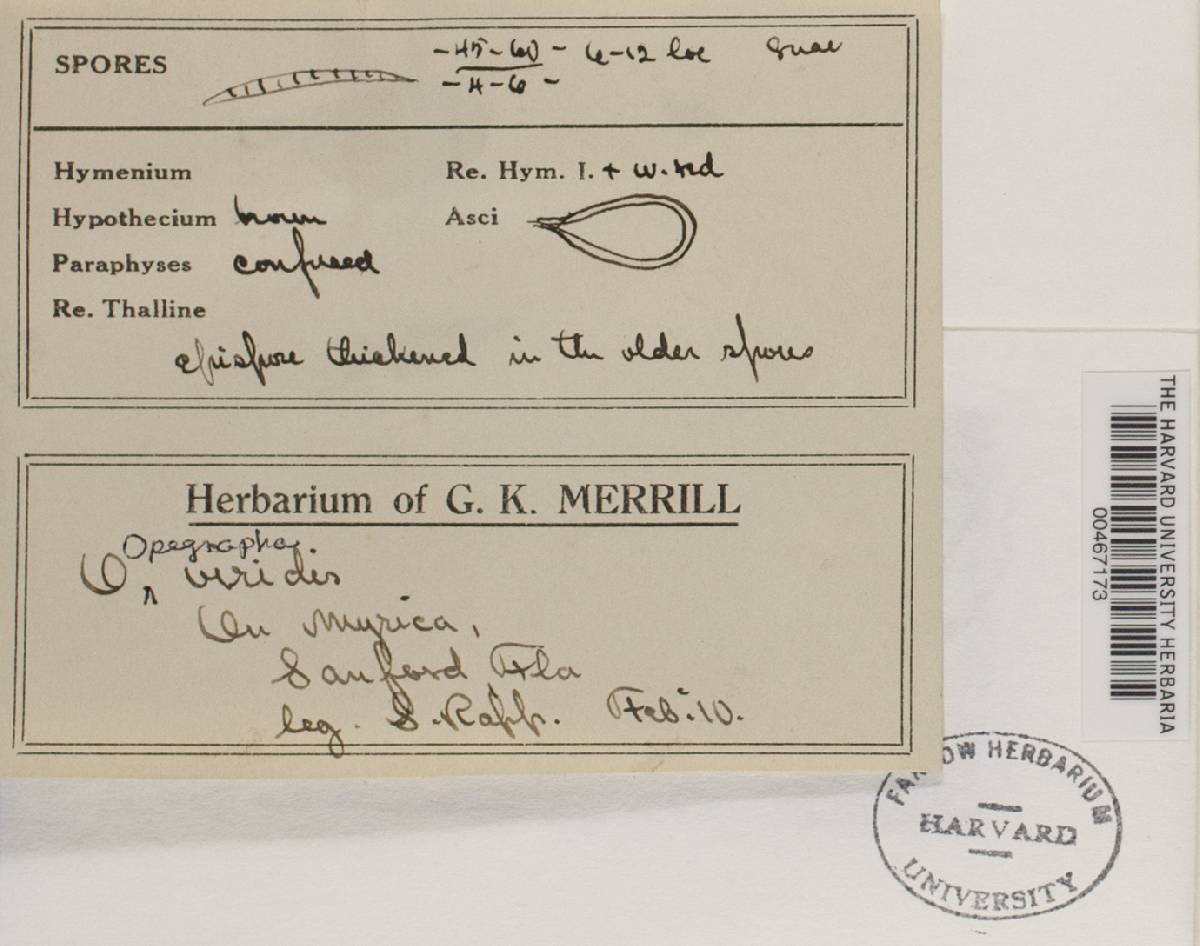 SPORES -45-60- 6-12 loc
-4-6-
Hymenium Re. Hym. I. + w. red
Hypothecium brown Asci
Paraphyses confused
Re. Thalline
epispore thickened in the older spores
Herbarium of G. K. MERRILL
Opegrapha.
O ^ viridis
On Myrica,
Sanford Fla
leg. S. Rapp. Feb. 10.
THE HARVARD UNIVERSITY HERBARIA
00467173
FARLOW HERBARIUM
HARVARD
UNIVERSITY